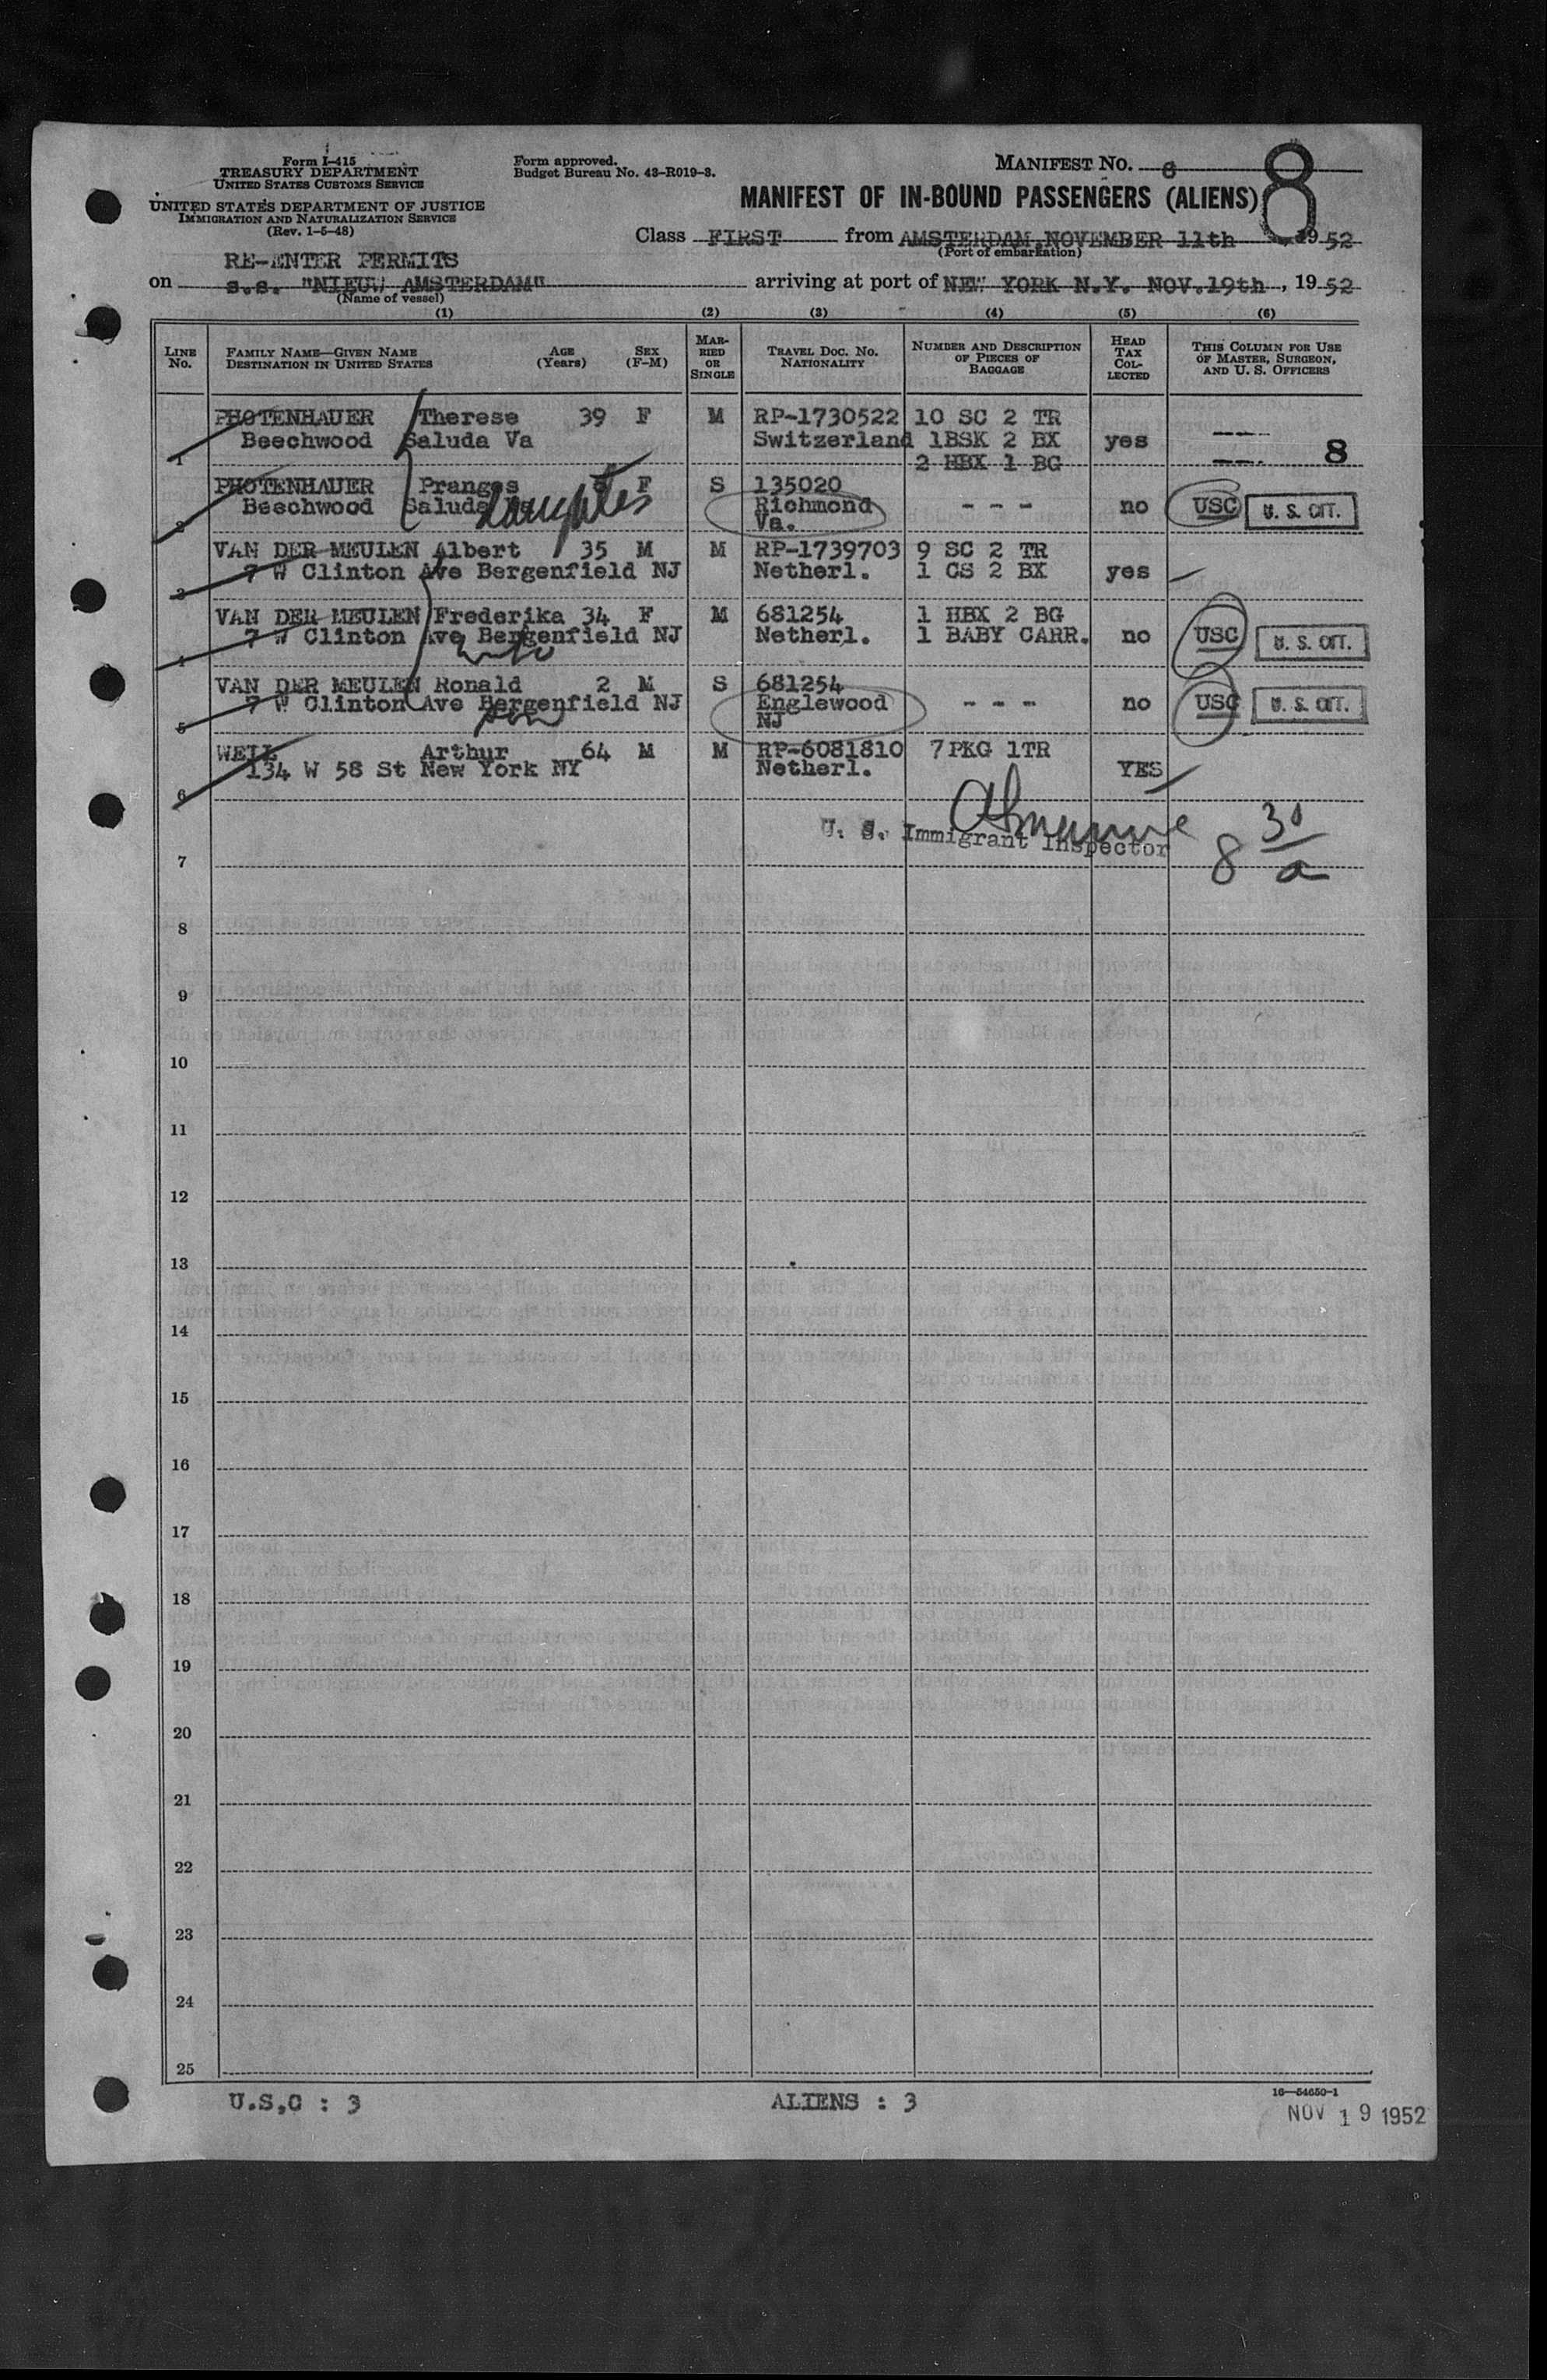 Form I-415
TREASURY DEPARTMENT
UNITED STATES CUSTOMS SERVICE
UNITED STATES DEPARTMENT OF JUSTICE
IMMIGRATION AND NATURALIZATION SERVICE
(Rev. 1-5-48)
Form approved.
Budget Bureau No. 43-R019-3.
MANIFEST NO. 8
8
MANIFEST OF IN-BOUND PASSENGERS (ALIENS)
Class FIRST from AMSTERDAM, NOVEMBER 11th 1952
(Port of embarkation)
RE-ENTER PERMITS
on s.s. "NIEUW AMSTERDAM" arriving at port of NEW YORK N.Y. NOV.19th, 1952
(Name of vessel)
(1) (2) (3) (4) (5) (6)
LINE No. FAMILY NAME—GIVEN NAME DESTINATION IN UNITED STATES AGE (Years) SEX (F-M) MARRIED OR SINGLE TRAVEL DOC. NO. NATIONALITY NUMBER AND DESCRIPTION OF PIECES OF BAGGAGE HEAD TAX COLLECTED THIS COLUMN FOR USE OF MASTER, SURGEON, AND U. S. OFFICERS
PHOTENHAUER Therese 39 F M RP-1730522 10 SC 2 TR
1 Beechwood Saluda Va Switzerland 1BSK 2 BX yes 8
2 HBX 1 BG
PHOTENHAUER Pranges F S 135020
2 Beechwood Saluda daughter Richmond - - - no USC U. S. CIT.
Va.
VAN DER MEULEN Albert 35 M M RP-1739703 9 SC 2 TR
3 7 W Clinton Ave Bergenfield NJ Netherl. 1 CS 2 BX yes
VAN DER MEULEN Frederika 34 F M 681254 1 HBX 2 BG
4 7 W Clinton Ave Bergenfield NJ Netherl. 1 BABY CARR. no USC U. S. CIT.
wife
VAN DER MEULEN Ronald 2 M S 681254
5 7 W Clinton Ave Bergenfield NJ Englewood - - - no USC U. S. CIT.
son NJ
WEIL Arthur 64 M M RP-6081810 7PKG 1TR
6 134 W 58 St New York NY Netherl. YES
U. S. Immigrant Inspector
8 30/a
7
8
9
10
11
12
13
14
15
16
17
18
19
20
21
22
23
24
25
U.S,C : 3 ALIENS : 3
16—54650-1
NOV 19 1952